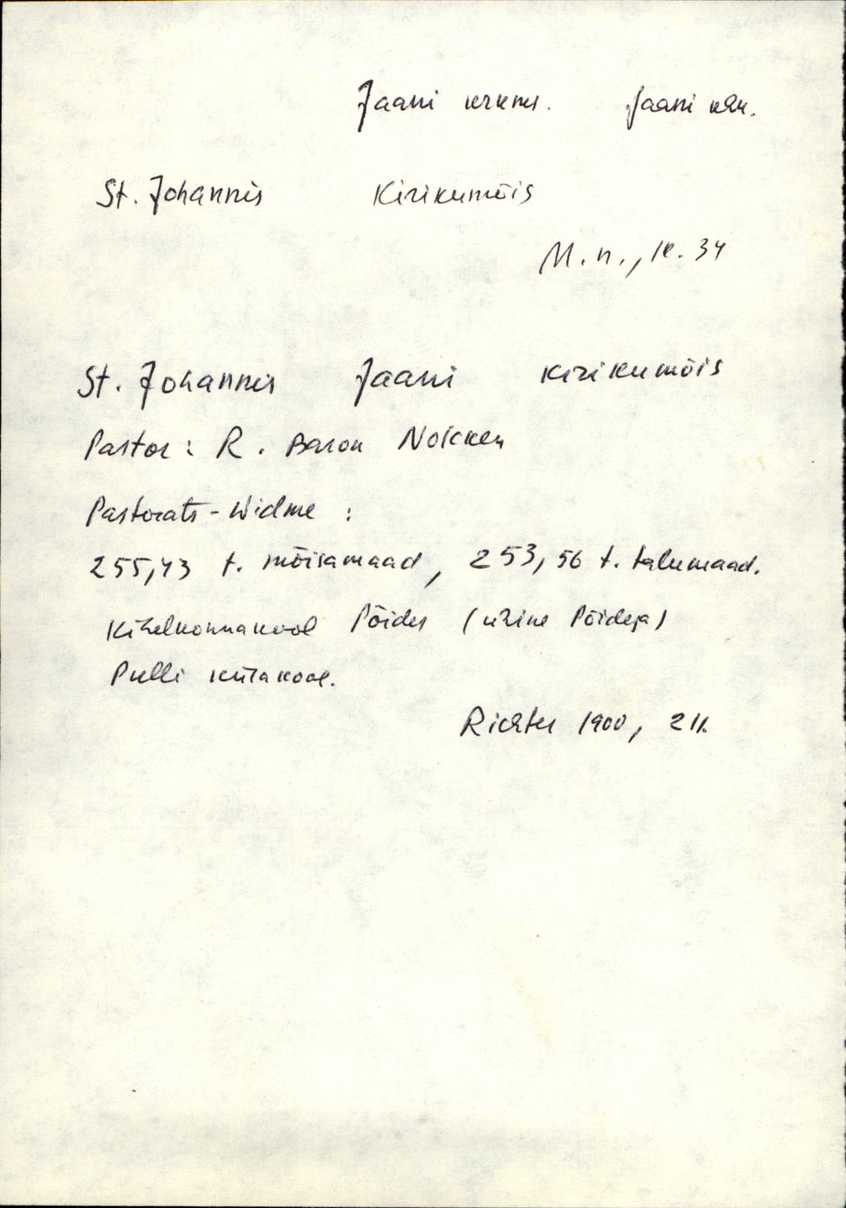 Jaani krkms. Jaani khk.
St. Johannis Kirikumõis
M. n., lk. 34
St. Johannis Jaani kirikumõis
Pastor: R. Baron Nolcken
Pastorats-Widme:
255,43 t. mõisamaad, 253,56 t. talumaad.
Kihelkonnakool Põides (ühine Põidega)
Pulli külakool.
Richter 1900, 211.